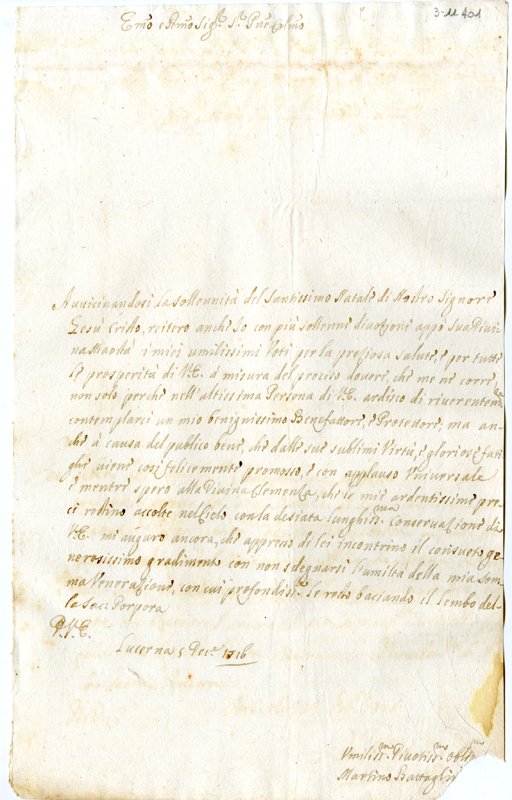 3-11 401
Emo e Rmo Sigr. Sr. Pne Colmo
Auuicinandosi la sollennità del Santissimo Natale di Nostro Signore
Gesù Cristo, reitero anche Io con più sollenne diuozione appo Sua Diui-
na Maestà i miei umilissimi Voti per la preziosa salute, e per tutte
le prosperità di V.E. à misura del preciso douere, che me ne corre,
non solo perche nell'altissima Persona di V.E. ardisco di riuerentemte
contemplarci un mio benignissimo Benefattore, e Protettore; ma an-
che à causa del publico bene, che dalle sue sublimi Virtù, e gloriose fati-
ghe uiene così felicemente promosso, e con applauso Vniuersale
e mentre spero alla Diuina Clemenza, che le mie ardentissime pre-
ci restino accolte nel Cielo con la desiata lunghissma conseruazione di
V.E. mi auguro ancora, che appresso de lei incontrino il consueto ge-
nerosissimo gradimento con non sdegnarsi l'umiltà della mia som-
ma Venerazione, con cui profondisste le resto baciando il lembo del-
la Sac. Porpora
D.V.E.
Lucerna 5 Dece. 1716
Vmilissmo Diuotissmo Obl
Martino Battaglin